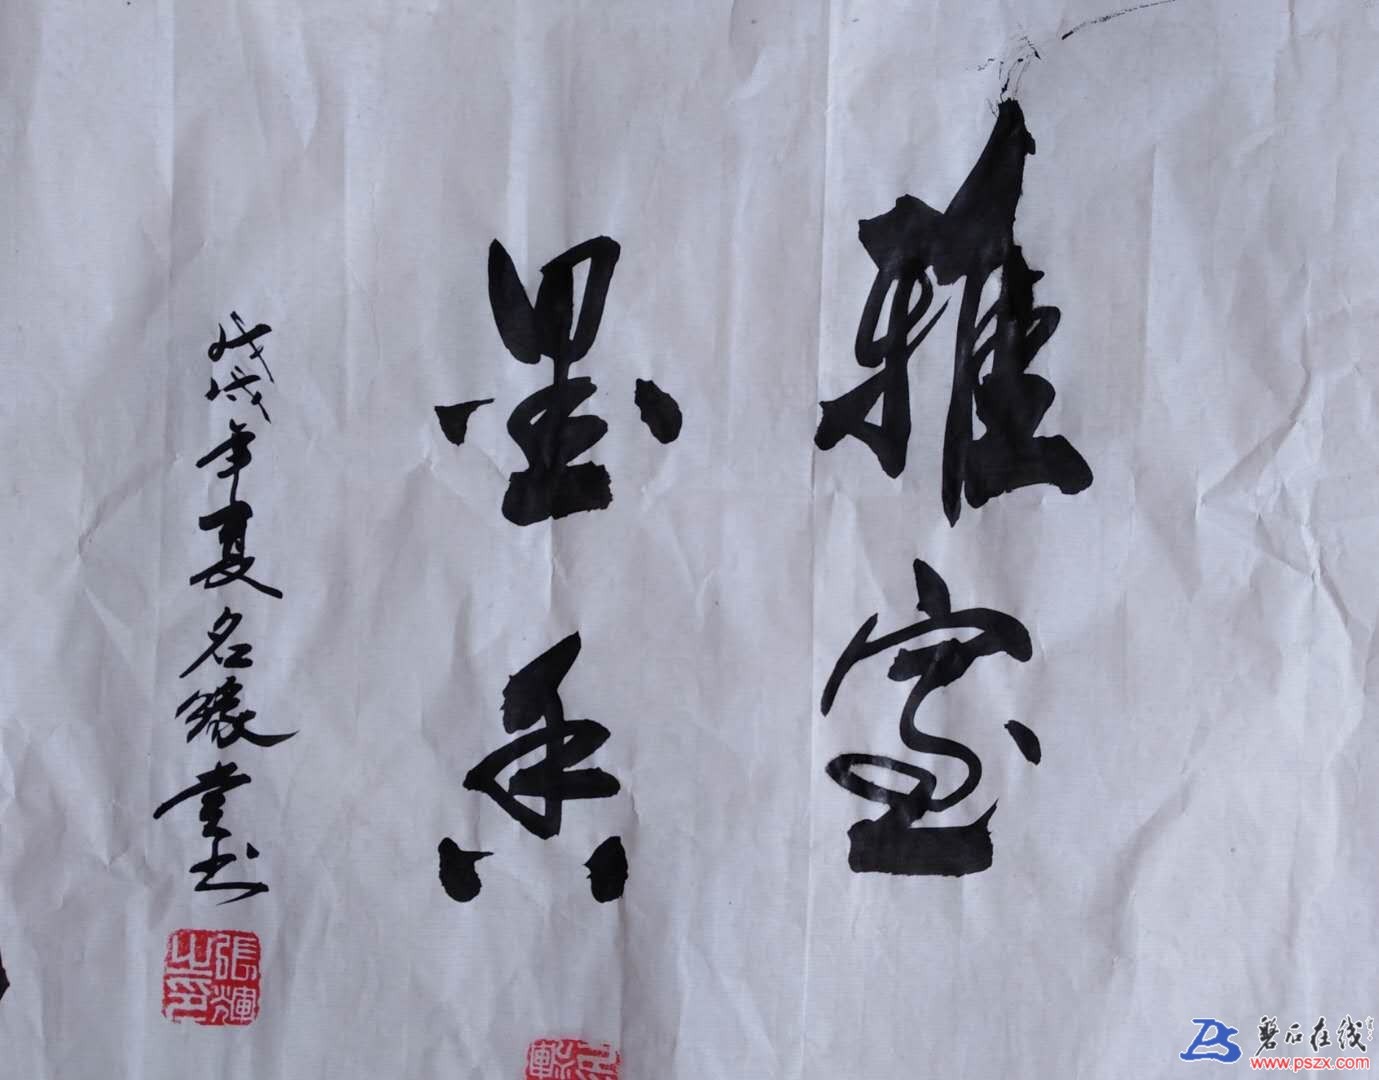 雅室
墨香
戊戌年夏名缘堂书
張輝之印
磐石在线
www.pszx.com